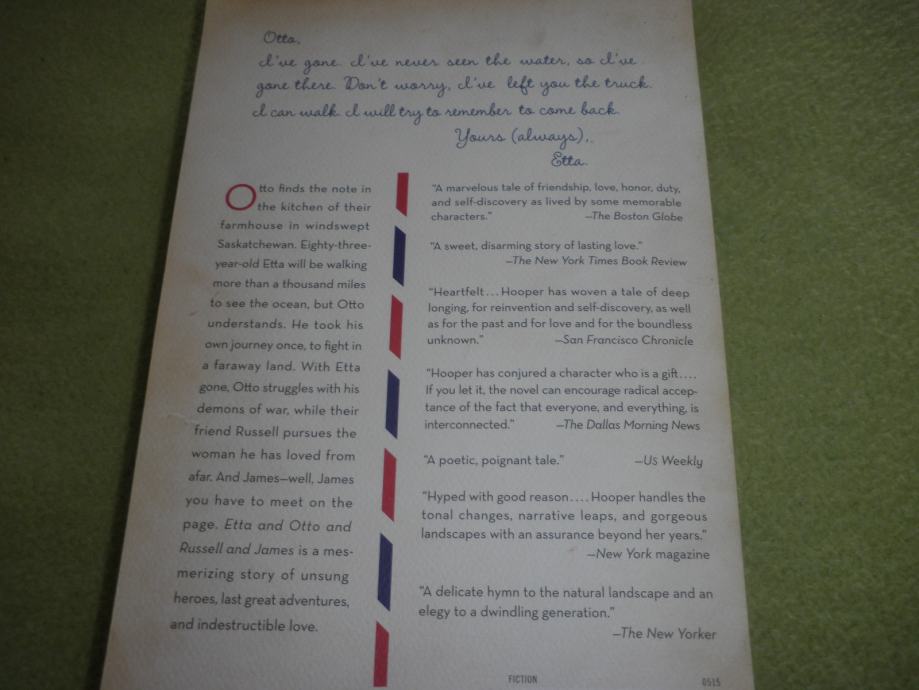 Otto,
I've gone. I've never seen the water, so I've
gone there. Don't worry, I've left you the truck.
I can walk. I will try to remember to come back.
Yours (always),
Etta.
Otto finds the note in
the kitchen of their
farmhouse in windswept
Saskatchewan. Eighty-three-
year-old Etta will be walking
more than a thousand miles
to see the ocean, but Otto
understands. He took his
own journey once, to fight in
a faraway land. With Etta
gone, Otto struggles with his
demons of war, while their
friend Russell pursues the
woman he has loved from
afar. And James—well, James
you have to meet on the
page. Etta and Otto and
Russell and James is a mes-
merizing story of unsung
heroes, last great adventures,
and indestructible love.
"A marvelous tale of friendship, love, honor, duty,
and self-discovery as lived by some memorable
characters." —The Boston Globe
"A sweet, disarming story of lasting love."
—The New York Times Book Review
"Heartfelt . . . Hooper has woven a tale of deep
longing, for reinvention and self-discovery, as well
as for the past and for love and for the boundless
unknown." —San Francisco Chronicle
"Hooper has conjured a character who is a gift. . . .
If you let it, the novel can encourage radical accep-
tance of the fact that everyone, and everything, is
interconnected." —The Dallas Morning News
"A poetic, poignant tale." —Us Weekly
"Hyped with good reason. . . . Hooper handles the
tonal changes, narrative leaps, and gorgeous
landscapes with an assurance beyond her years."
—New York magazine
"A delicate hymn to the natural landscape and an
elegy to a dwindling generation."
—The New Yorker
FICTION 0515